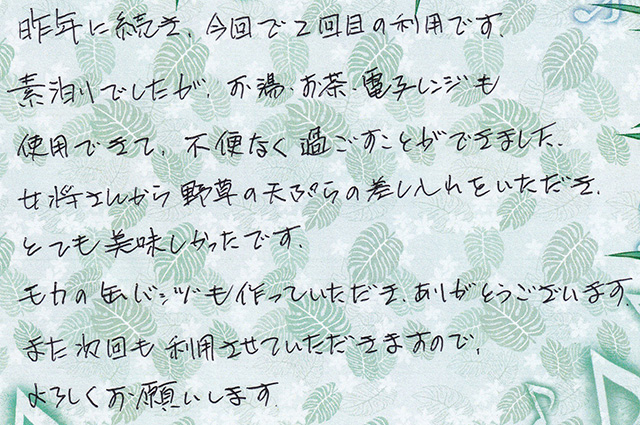 昨年に続き、今回で2回目の利用です。
素泊りでしたが、お湯・お茶・電子レンジも
使用できて、不便なく過ごすことができました。
女将さんから野草の天ぷらの差し入れをいただき、
とても美味しかったです。
モカの缶バッジも作っていただき、ありがとうございます。
また次回も利用させていただきますので、
よろしくお願いします。